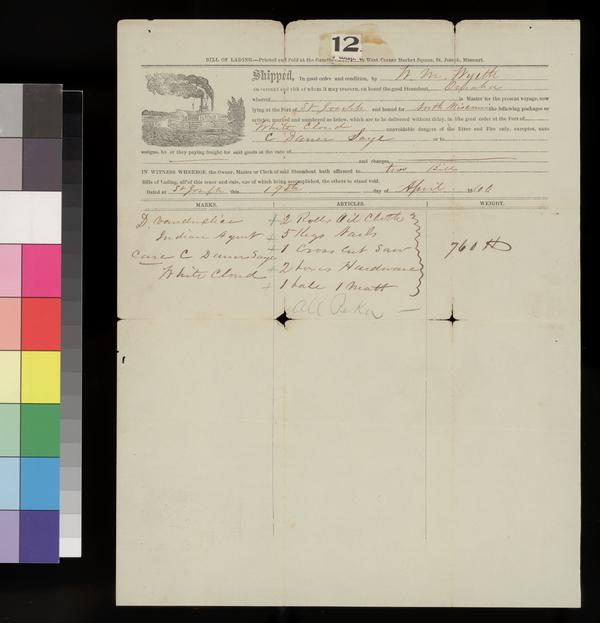 12
BILL OF LADING.—Printed and Sold at the Gazette West Corner Market Square, St. Joseph, Missouri.
Shipped, In good order and condition, by W. M. Wyeth
on account and risk of whom it may concern, on board the good Steamboat, Omaha
whereof is Master for the present voyage, now
lying at the Port of St Joseph and bound for the following packages or
articles, marked and numbered as below, which are to be delivered without delay, in like good order at the Port of
White Cloud unavoidable dangers of the River and Fire only, excepted, unto
C or to
assigns, he or they paying freight for said goods at the rate of
and charges,
IN WITNESS WHEREOF, the Owner, Master or Clerk of said Steamboat hath affirmed to two Bills
Bills of Lading, all of this tenor and date, one of which being accomplished, the others to stand void.
Dated at St Joseph this 19th day of April 1860
MARKS. ARTICLES. WEIGHT.
D. Vanderslice 2 Rolls Oil Cloth
Indian Agent 5 Kegs Nails
Care C 1 Cross Cut Saw 760 lb
White Cloud 2 boxes Hardware
1 bale 1 Matt
All